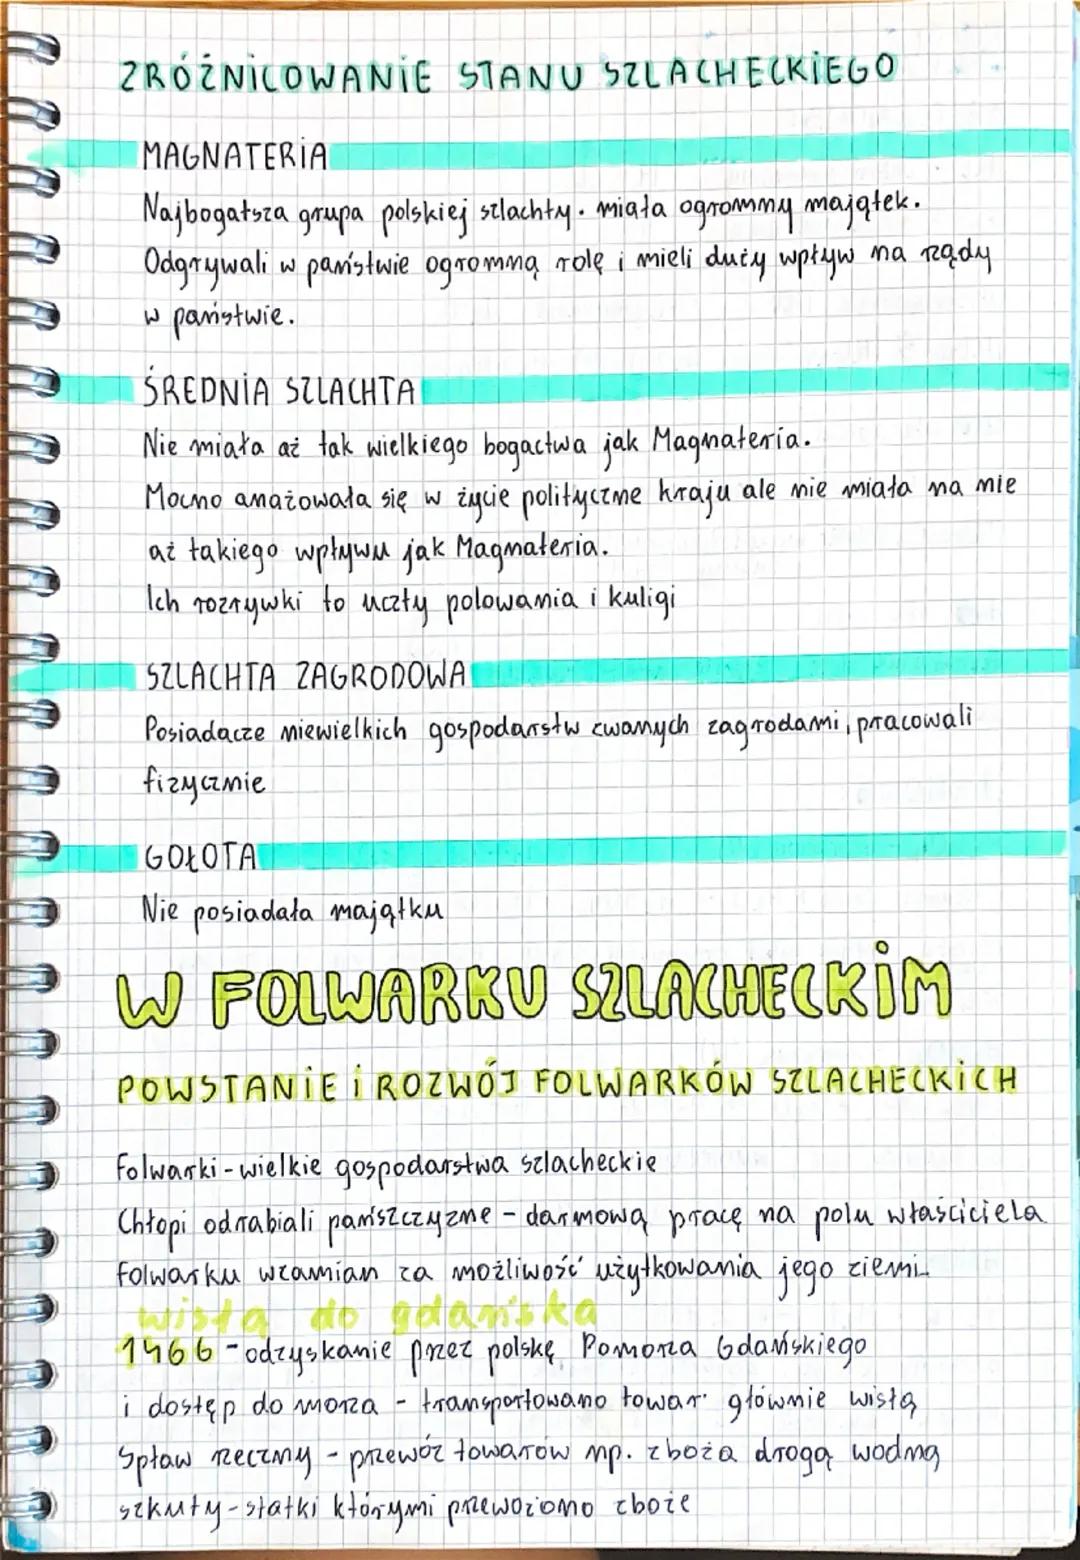 ZRÓŻNICOWANIE STANU SZLACHECKIEGO
MAGNATERIA
Najbogatsza grupa polskiej szlachty. miała ogrommy majątek.
Odgrywali w państwie ogromną rolę i mieli duży wpływ na rządy
w państwie.
ŚREDNIA SZLACHTA
Nie miała aż tak wielkiego bogactwa jak Magnateria.
Mocno anażowała się w życie polityczne kraju ale nie miała na nie
aż takiego wpływu jak Magnateria.
Ich rozrywki to uczty polowania i kuligi
SZLACHTA ZAGRODOWA
Posiadacze niewielkich gospodarstw zwanych zagrodami, pracowali
fizycznie
GOŁOTA
Nie posiadała majątku
W FOLWARKU SZLACHECKIM
POWSTANIE I ROZWÓJ FOLWARKÓW SZLACHECKICH
Folwarki - wielkie gospodarstwa szlacheckie
Chłopi odrabiali pańszczyzne - darmową pracę na polu właściciela
folwarku wzamian za możliwość użytkowania jego ziemi
wisłą do gdańska
1466 - odzyskanie przez polskę Pomorza Gdańskiego
i dostęp do morza - transportowano towar głównie wisłą
Spław rzeczny - przewóz towarów np. zboża drogą wodną
szkuty - statki którymi przewożono zboże